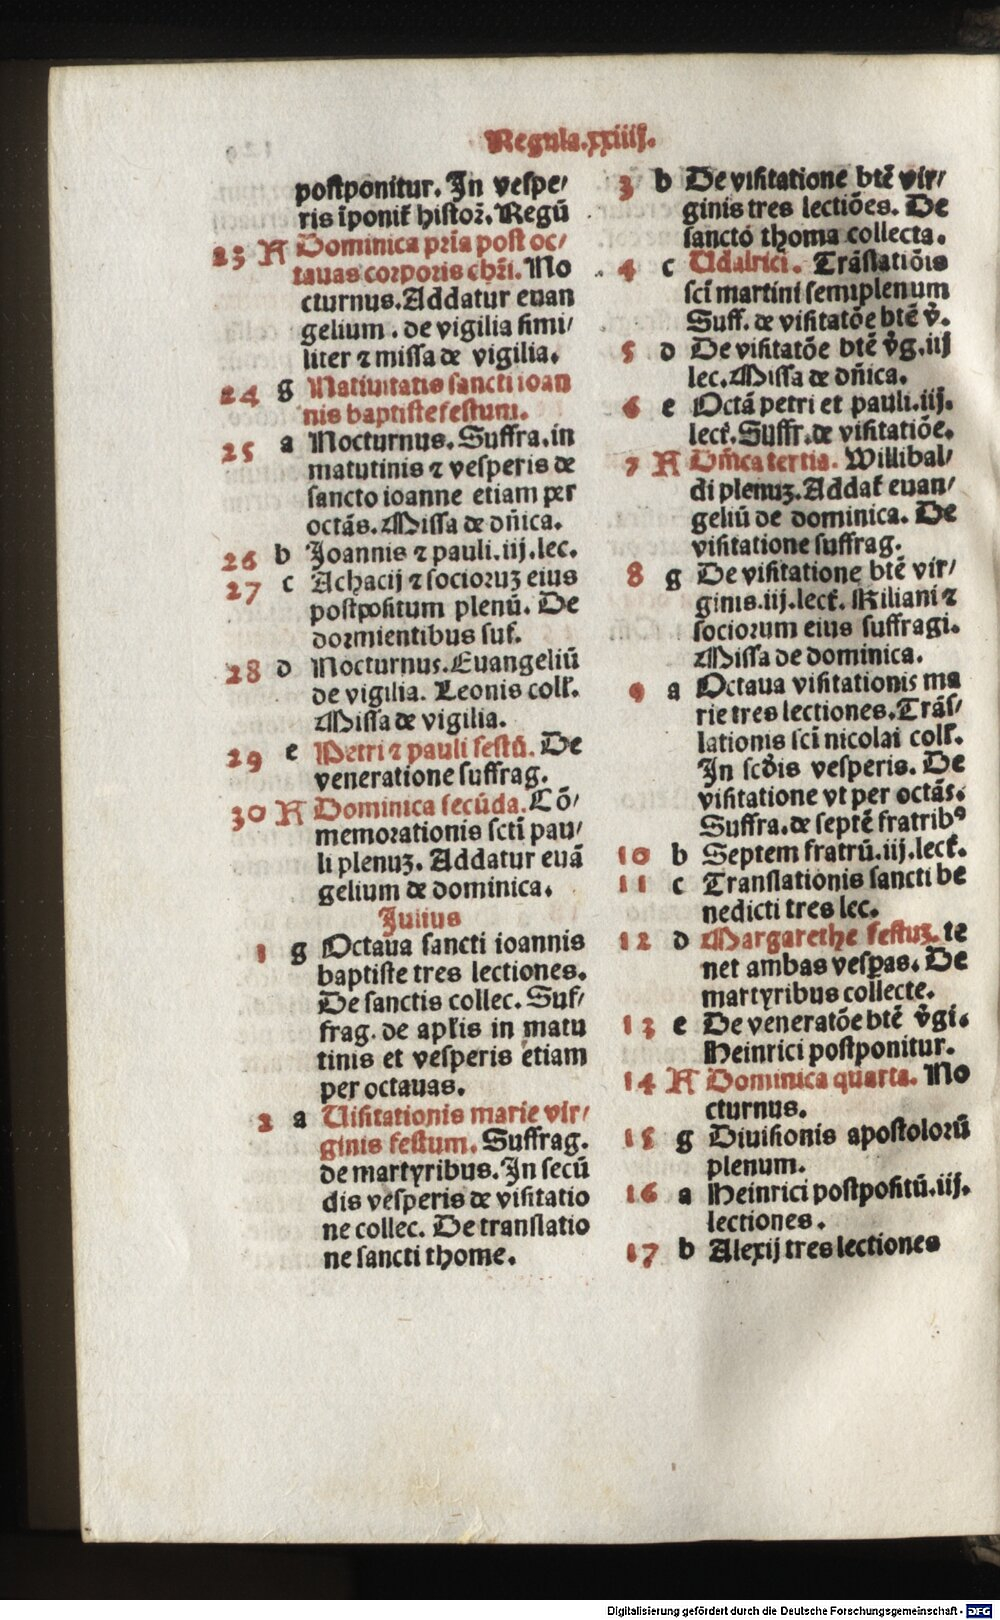 Regula.xxiiij.
postponitur. In vespe/
ris īponit᷑ histoꝛ̃. Regū
23 A Dominica pr̃ia post oc/
tauas corporis chr̃i. No
cturnus. Addatur euan
gelium. de vigilia simi/
liter ⁊ missa de vigilia.
24 g Natiuitatis sancti ioan
nis baptiste festum.
25 a Nocturnus. Suffra. in
matutinis ⁊ vesperis de
sancto ioanne etiam per
octās. Missa de dn̄ica.
26 b Joannis ⁊ pauli. iij. lec.
27 c Achacij ⁊ socioruꝫ eius
postpositum plenū. De
dormientibus suf.
28 d Nocturnus. Euangeliū
de vigilia. Leonis coll.
Missa de vigilia.
29 e Petri ⁊ pauli festū. De
veneratione suffrag.
30 A Dominica secūda. Cō/
memorationis scti pau/
li plenuꝫ. Addatur euā
gelium de dominica.
Julius
1 g Octaua sancti ioannis
baptiste tres lectiones.
De sanctis collec. Suf/
frag. de apl̃is in matu
tinis et vesperis etiam
per octauas.
2 a Uisitationis marie vir/
ginis festum. Suffrag.
de martyribus. In secū
dis vesperis de visitatio
ne collec. De translatio
ne sancti thome.
3 b De visitatione btē vir/
ginis tres lectiōes. De
sancto thoma collecta.
4 c Udalrici. Trāslatiōis
sci martini semiplenum
Suff. de visitatōe btē v̄.
5 d De visitatōe btē v̄g. iij
lec. Missa de dn̄ica.
6 e Octā petri et pauli. iij.
lect. Suffr. de visitatiōe.
7 A Dn̄ica tertia. Willibal/
di plenuꝫ. Addat᷑ euan/
geliū de dominica. De
visitatione suffrag.
8 g De visitatione btē vir/
ginis. iij. lect. Kiliani ⁊
sociorum eius suffragi.
Missa de dominica.
9 a Octaua visitationis ma
rie tres lectiones. Trās/
lationis sci nicolai coll.
In scd̄is vesperis. De
visitatione vt per octās.
Suffra. de septē fratribꝰ
10 b Septem fratrū. iij. lect.
11 c Translationis sancti be
nedicti tres lec.
12 d Margarethe festuꝫ. te
net ambas vesꝑas. De
martyribus collecte.
13 e De veneratōe btē v̄gi.
Heinrici postponitur.
14 A Dominica quarta. No
cturnus.
15 g Diuisionis apostolorū
plenum.
16 a Heinrici postpositū. iij.
lectiones.
17 b Alexij tres lectiones
Digitalisierung gefördert durch die Deutsche Forschungsgemeinschaft - DFG